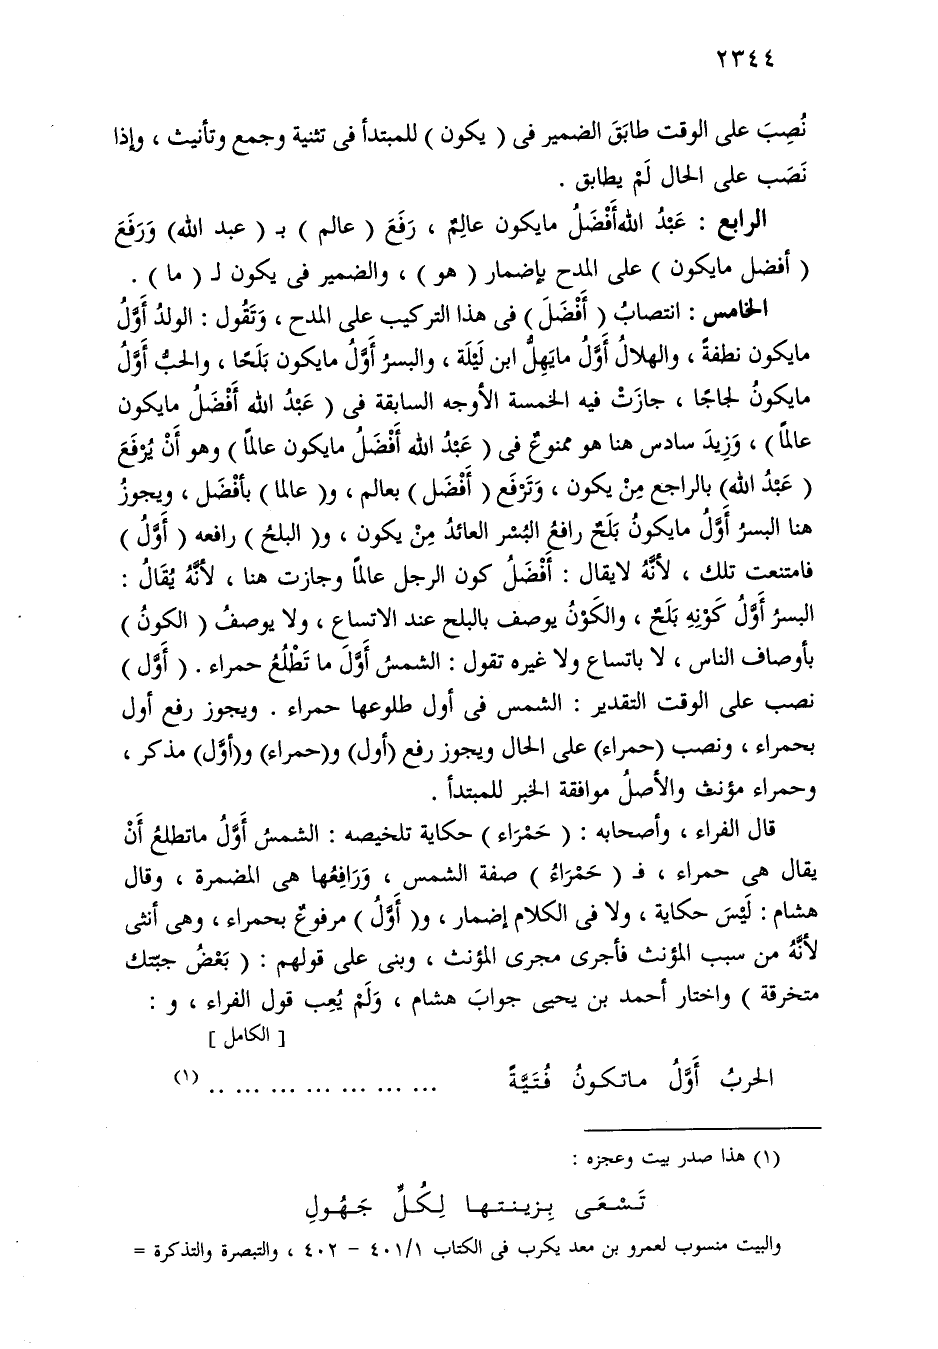 ٢٣٤٤
نُصِبَ على الوقت طابَقَ الضمير فى ( يكون ) للمبتدأ فى تثنية وجمع وتأنيث ، وإذا
نَصَب على الحال لَمْ يطابق .
الرابع : عَبْدُ اللهأَفْضَلُ مايكون عالِمٌ ، رَفَعَ ( عالم ) بـ ( عبد الله) وَرَفَعَ
( أفضل مايكون ) على المدح بإضمار ( هو ) ، والضمير فى يكون لـ ( ما ) .
الخامس : انتصابُ ( أَفْضَلَ ) فى هذا التركيب على المدح ، وَتَقُول : الولدُ أَوَّلُ
مايكون نطفةً ، والهلالُ أَوَّلُ مايَهِلُّ ابن لَيْلَة ، والبسرُ أوَّلُ مايكون بَلَحًا ، والحبُّ أَوَّلُ
مايكونُ لجاجًا ، جازَتْ فيه الخمسة الأوجه السابقة فى ( عَبْدُ الله أَفْضَلُ مايكون
عالماً ) ، وَزِيدَ سادس هنا هو ممنوعٌ فى ( عَبْدُ الله أَفْضَلُ مايكون عالماً ) وهو أَنْ يُرْفَعَ
( عَبْدُ الله) بالراجع مِنْ يكون ، وَتَرْفَع ( أَفْضَل ) بعالم ، و( عالما ) بأَفْضَل ، ويجوزُ
هنا البسرُ أَوَّلُ مايكونُ بَلَحٌ رافعُ البُسْر العائدُ مِنْ يكون ، و( البلحُ ) رافعه ( أَوَّلُ )
فامتنعت تلك ، لأَنَّهُ لايقال : أَفْضَلُ كون الرجل عالماً وجازت هنا ، لأَنَّهُ يُقَالُ :
البسرُ أَوَّلُ كَوْنِهِ بَلَحٌ ، والكَوْنُ يوصف بالبلح عند الاتساع ، ولا يوصفُ ( الكونُ )
بأوصاف الناس ، لا باتساع ولا غيره تقول : الشمسُ أَوَّلَ ما تَطْلُعُ حمراء . ( أَوَّل )
نصب على الوقت التقدير : الشمس فى أول طلوعها حمراء . ويجوز رفع أول
بحمراء ، ونصب (حمراء) على الحال ويجوز رفع (أول) و(حمراء) و(أوَّل) مذكر ،
وحمراء مؤنث والأصلُ موافقة الخبر للمبتدأ .
قال الفراء ، وأصحابه : ( حَمْرَاء ) حكاية تلخيصه : الشمسُ أَوَّلُ ماتطلعُ أَنْ
يقال هى حمراء ، فـ ( حَمْرَاءُ ) صفة الشمس ، وَرَافِعُها هى المضمرة ، وقال
هشام : لَيْسَ حكاية ، ولا فى الكلام إضمار ، و( أَوَّلُ ) مرفوعٌ بحمراء ، وهى أنثى
لأَنَّهُ من سبب المؤنث فأجرى مجرى المؤنث ، وبنى على قولهم : ( بَعْضُ جبّتك
متخرقة ) واختار أحمد بن يحيى جوابَ هشام ، وَلَمْ يُعِب قول الفراء ، و :
[ الكامل ]
الحربُ أَوَّلُ ماتكونُ فُتَيَّةً ... ... ... ... ... ... .. .. (١)
(١) هذا صدر بيت وعجزه :
تَسْعَى بِزينتها لِكُلِّ جَهُولِ
والبيت منسوب لعمرو بن معد يكرب فى الكتاب ٤٠١/١ – ٤٠٢ ، والتبصرة والتذكرة =